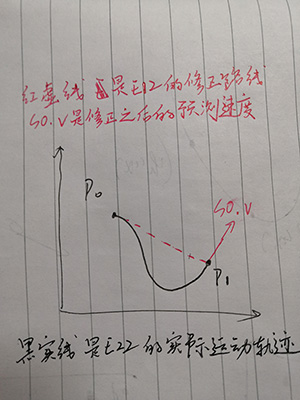 红虚线是E12的修正路线
SO.V是修正之后的预测速度
P₀
SO.V
P₁
黑实线是E22的实际运动轨迹